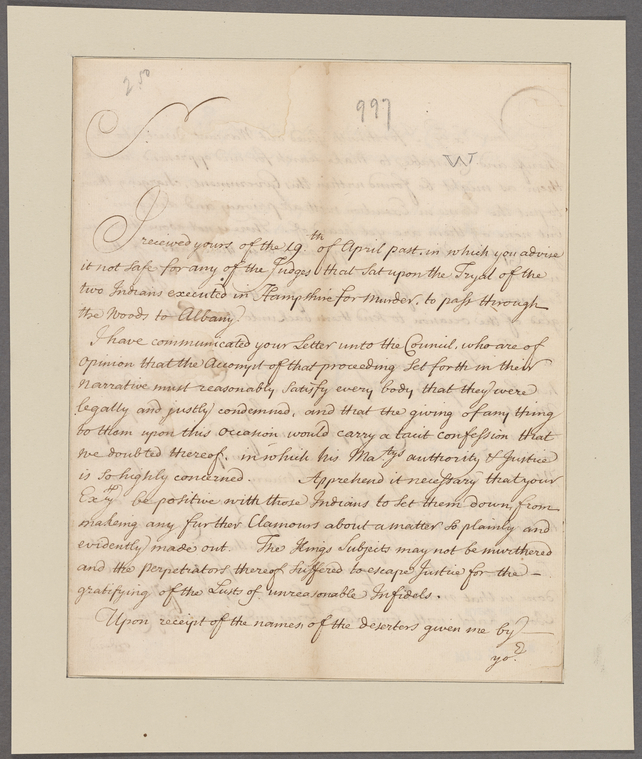 2.50
997
W
S
I received yours of the 19th of April past, in which you advise
it not safe for any of the Judges that sat upon the Tryal of the
two Indians executed in Hampshire for Murder, to pass through
the Woods to Albany.
I have communicated your Letter unto the Council, who are of
Opinion that the Accompt of that proceeding Set forth in their
Narrative must reasonably satisfy every body, that they were
legally and justly condemned, and that the giving of any thing
to them upon this occasion would carry a tacit confession that
we doubted thereof, in which his Matys authority & Justice
is so highly concerned. Apprehend it necessary that your
Excy be positive with those Indians to Set them down from
making any further Clamours about a matter so plainly and
evidently made out. The Kings Subjects may not be murthered
and the perpetrators thereof suffered to escape Justice for the
gratifying of the Lusts of unreasonable Infidels.
Upon receipt of the names of the deserters given me by
yor